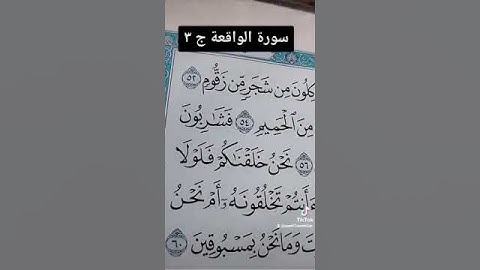 سورة الواقعة ج ٣
كِلُونَ مِن شَجَرٍ مِّن زَقُّومٍ ٥٢
مِنَ ٱلْحَمِيمِ ٥٤ فَشَٰرِبُونَ
٥٦ نَحْنُ خَلَقْنَٰكُمْ فَلَوْلَا
ءَأَنتُمْ تَخْلُقُونَهُۥٓ أَمْ نَحْنُ
TikTok
تَ وَمَا نَحْنُ بِمَسْبُوقِينَ ٦٠